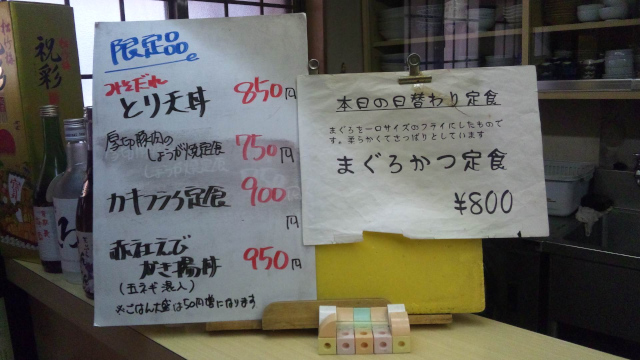 限定品
みそだれ
とり天丼 850円
厚切豚肉の
しょうが焼定食 750円
カキフライ定食 900
円
赤社えび
かき揚丼 950円
(玉ネギ混入)
※ごはん大盛は50円増になります
本日の日替わり定食
まぐろを一口サイズのフライにしたもので
す。柔らかくてさっぱりとしています
まぐろかつ定食
¥800
祝彩